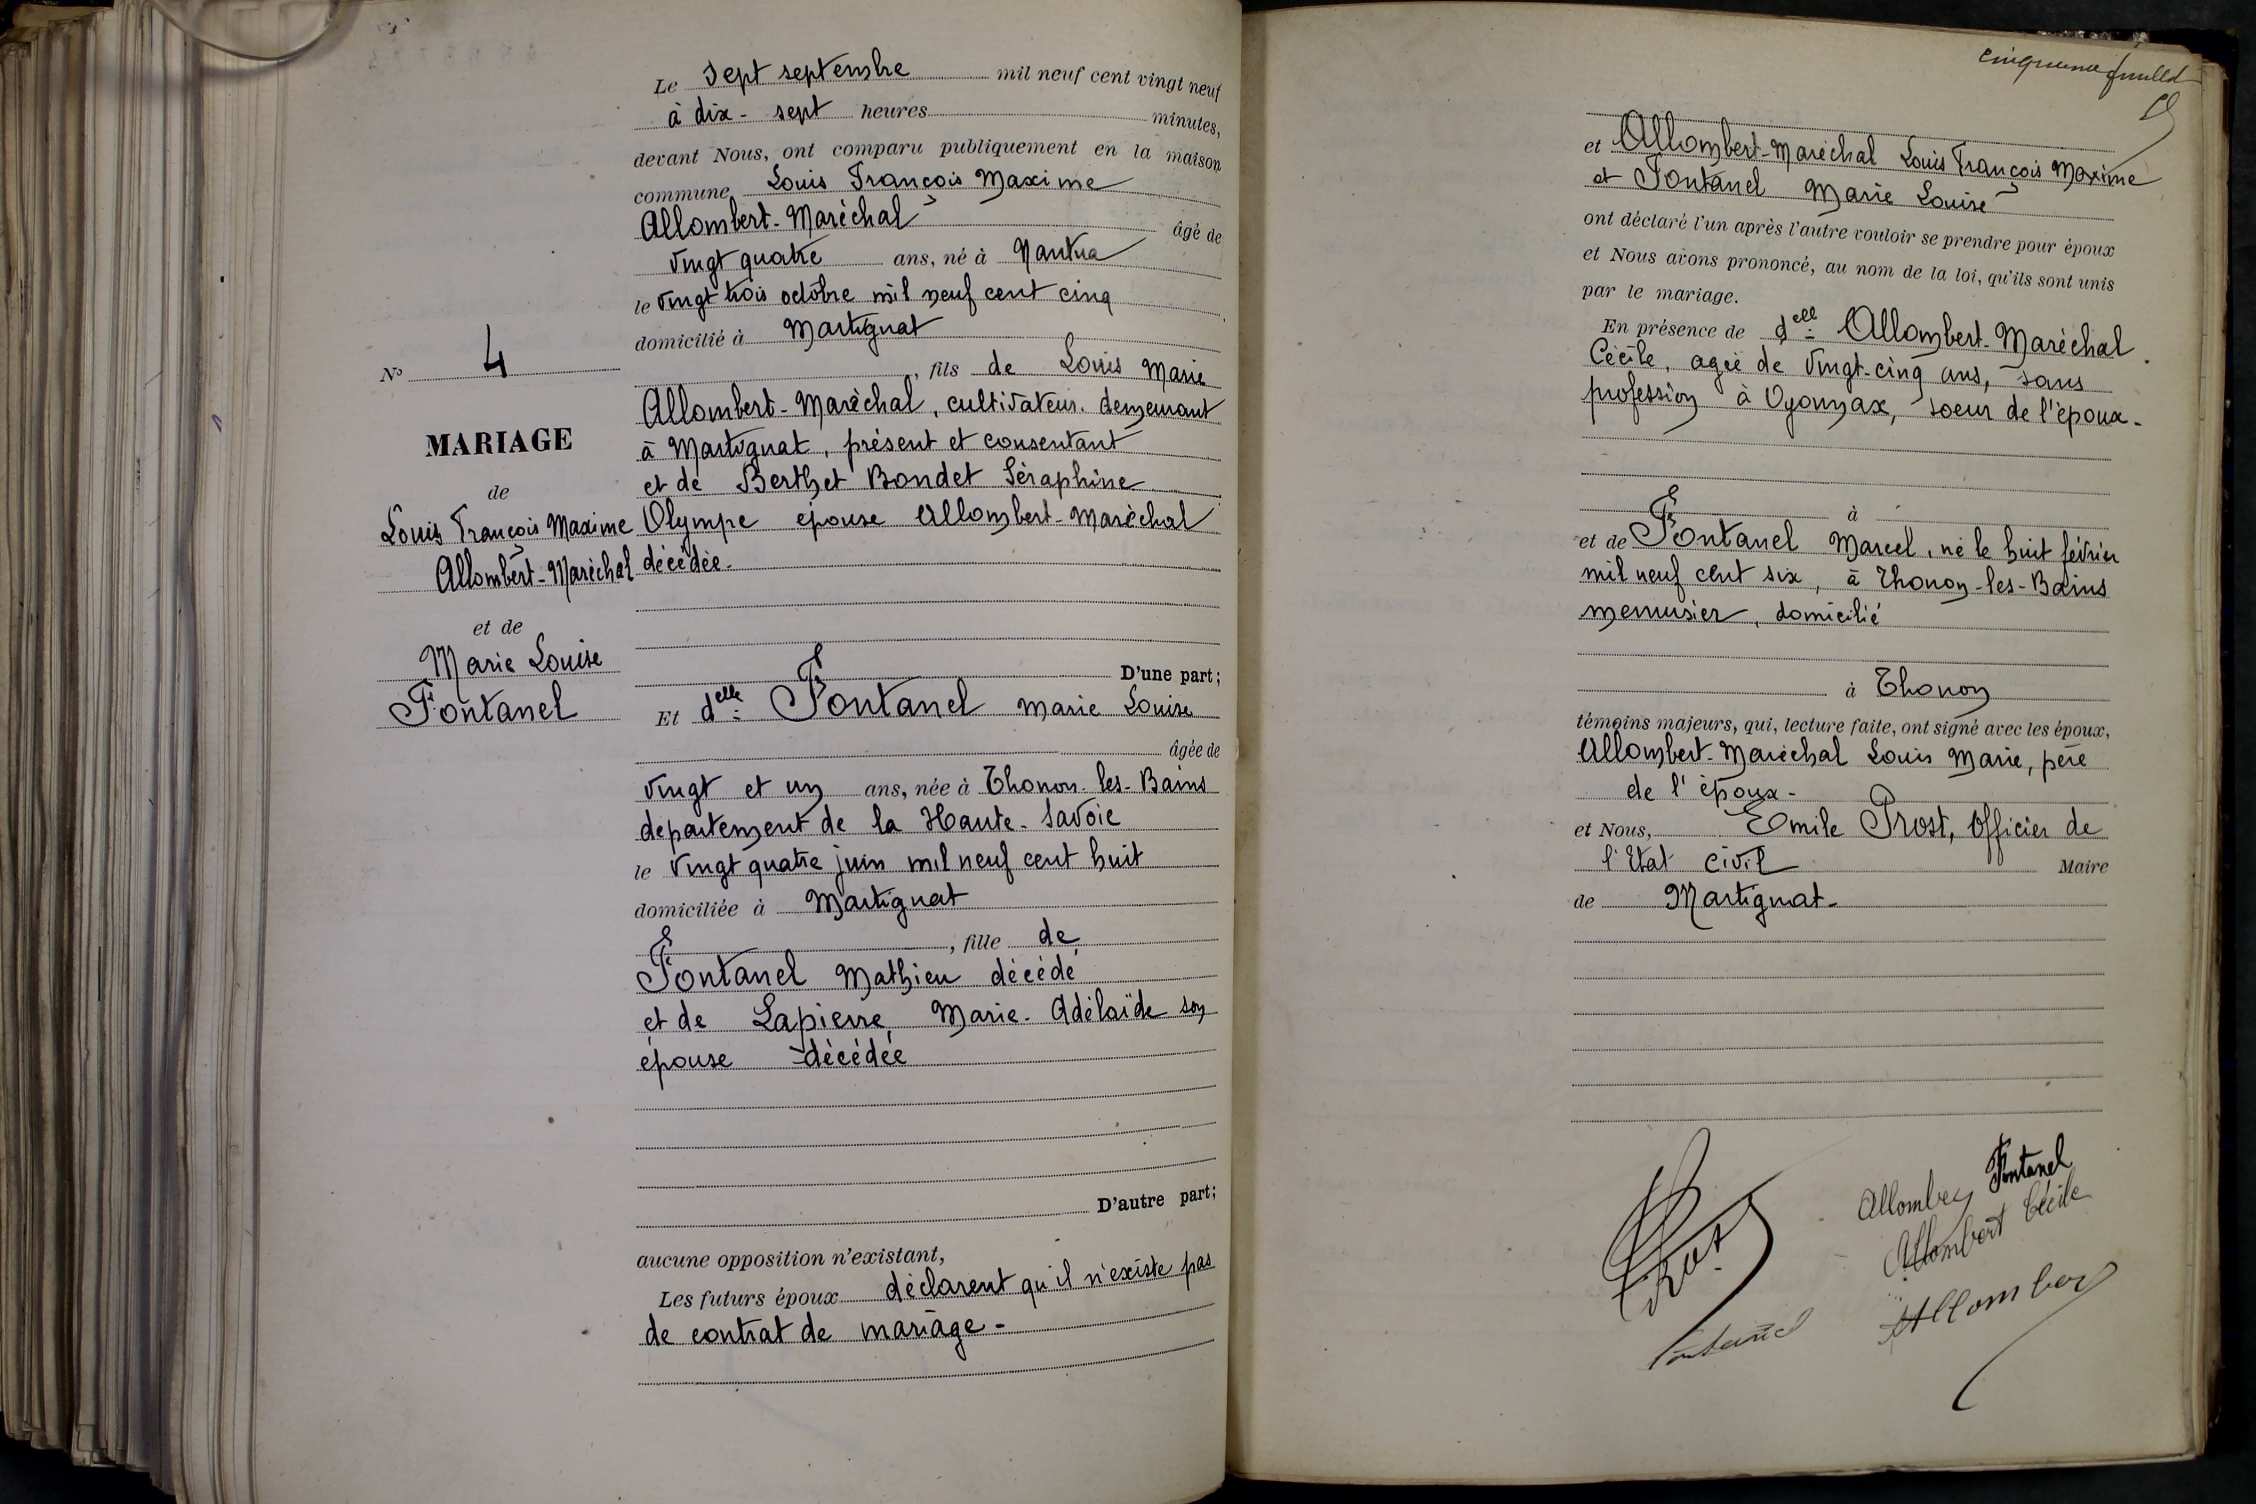 N° 4
MARIAGE
de
Louis François Maxime
Allombert-Maréchal
et de
Marie Louise
Fontanel
Le sept septembre mil neuf cent vingt neuf
à dix-sept heures minutes,
devant Nous, ont comparu publiquement en la maison
commune Louis François Maxime
Allombert-Maréchal âgé de
vingt quatre ans, né à Nantua
le vingt trois octobre mil neuf cent cinq
domicilié à Martignat
, fils de Louis Marie
Allombert-Maréchal, cultivateur. demeurant
à Martignat, présent et consentant
et de Berthet Bondet Séraphine
Olympe épouse Allombert-Maréchal
décédée-
D'une part;
Et delle Fontanel Marie Louise
âgée de
vingt et un ans, née à Thonon-les-Bains
departement de la Haute-Savoie
le vingt quatre juin mil neuf cent huit
domiciliée à Martignat
, fille de
Fontanel Mathieu décédé
et de Lapierre Marie-Adélaïde son
épouse décédée
D'autre part;
aucune opposition n'existant,
Les futurs époux déclarent qu'il n'existe pas
de contrat de mariage-
feuillet
et Allombert-Maréchal Louis François Maxime
et Fontanel Marie Louise
ont déclaré l'un après l'autre vouloir se prendre pour époux
et Nous avons prononcé, au nom de la loi, qu'ils sont unis
par le mariage.
En présence de delle Allombert-Maréchal
Cécile, agée de vingt-cinq ans, sans
profession à Oyonnax, soeur de l'époux-
à
et de Fontanel Marcel, né le huit février
mil neuf cent six, à Thonon-les-Bains
menuisier, domicilié
à Thonon
témoins majeurs, qui, lecture faite, ont signé avec les époux,
Allombert-Maréchal Louis Marie, père
de l'époux-
et Nous, Emile Prost, Officier de
l'Etat civil Maire
de Martignat-
Fontanel
Allombert Cécile
Prost